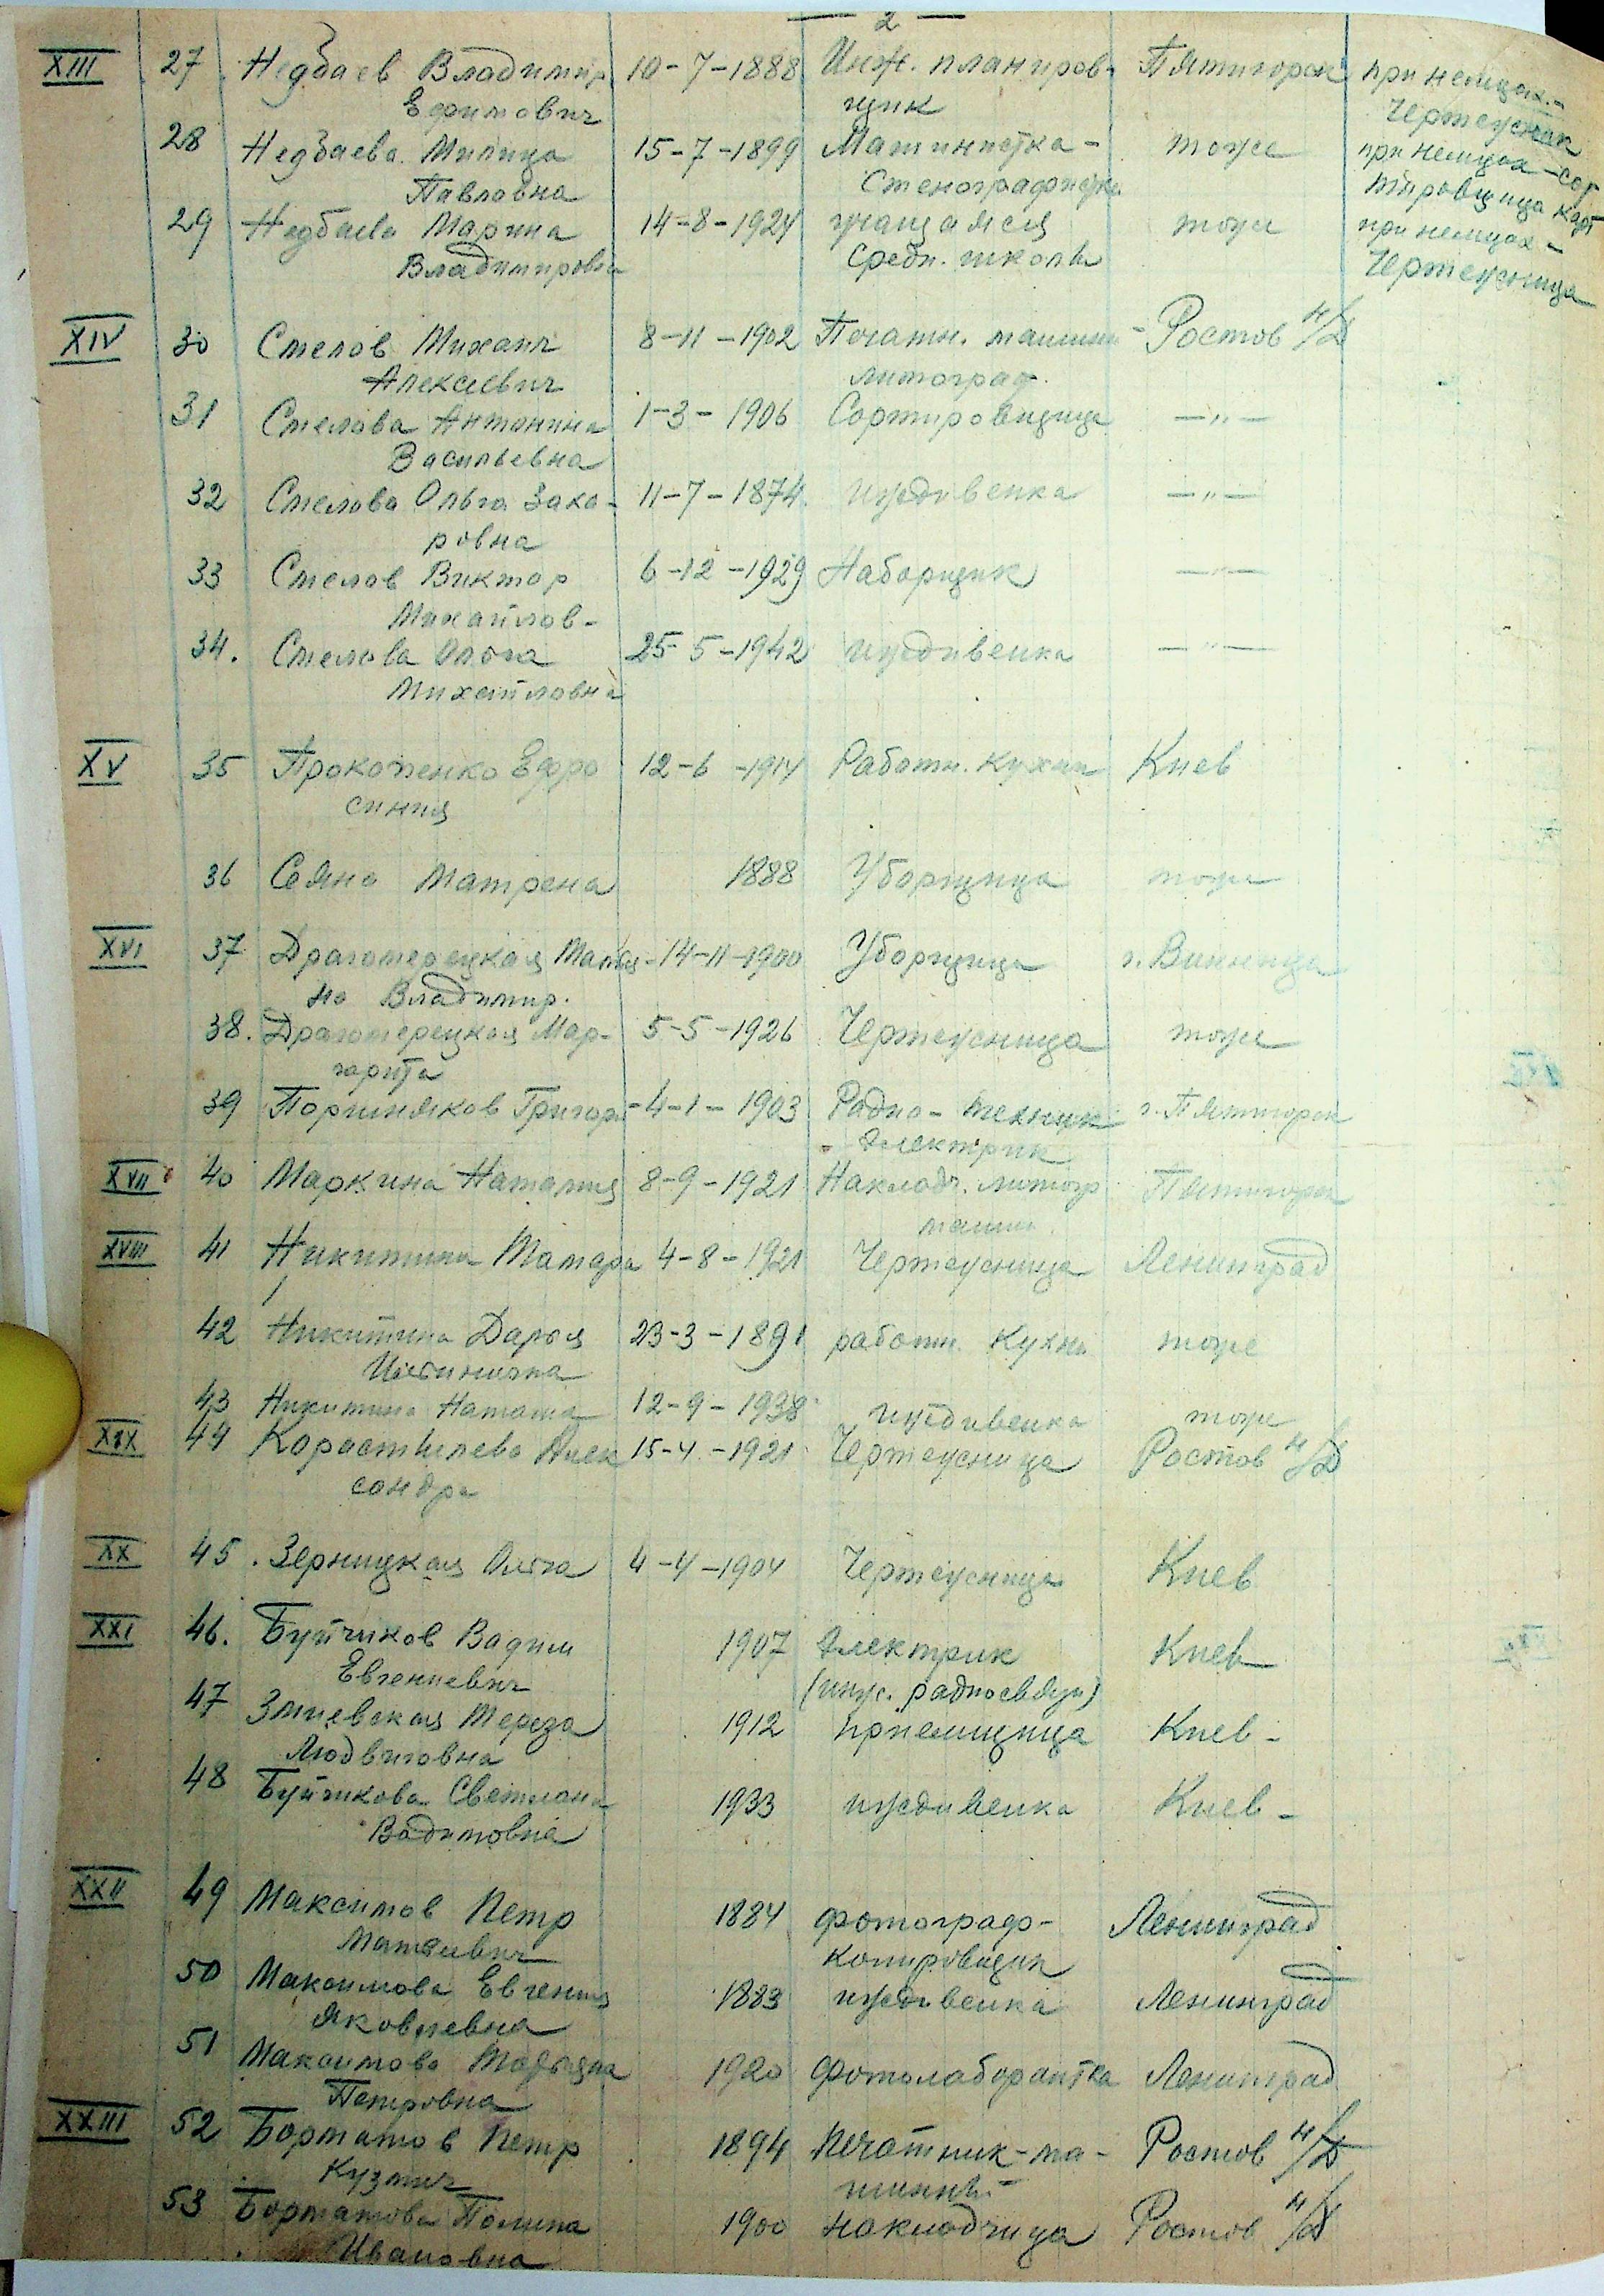 — 2 —
XIII 27 Недбаев Владимир 10-7-1888 Инж. планиров- Пятигорск при немцах. -
Ефимович щик Чертежник
28 Недбаева Милица 15-7-1899 Машинистка - тоже при немцах - сор
Павловна Стенографистка тировщица карт
29 Недбаева Марина 14-8-1924 учащаяся тоже при немцах -
Владимировна Средн. школы Чертежница
XIV 30 Смелов Михаил 8-11-1902 Печатн. машин - Ростов н/Д
Алексеевич литограф.
31 Смелова Антонина 1-3-1906 Сортировщица —"—
Васильевна
32 Смелова Ольга Заха- 11-7-1874 иждивенка —"—
ровна
33 Смелов Виктор 6-12-1929 Наборщик —"—
Михайлов-
34. Смелова Ольга 25-5-1942 иждивенка —"—
Михайловна
XV 35 Прокопенко Ефро 12-6-1914 Работн. кухни Киев
синия
36 Сеяно Матрена 1888 Уборщица тоже
XVI 37 Драгомерецкая 14-11-1900 Уборщица г. Винница
Владимир.
38. Драгомерецкая Мар- 5-5-1926 Чертежница тоже
гарита
39 Поршняков Григори - 4-1-1903 Радио-техник г. Пятигорск
- электрик
XVII 40 Маркина Наталия 8-9-1921 Накладч. литогр Пятигорск
машин.
XVIII 41 Никитина Тамара 4-8-1921 Чертежница Ленинград
42 Никитина Дарья 23-3-1891 работн. Кухни тоже
43 Никитина Наташа 12-9-1938 иждивенка тоже
XIX 44 Коростылева Алек 15-4-1921 Чертежница Ростов н/Д
сандра
XX 45. Зерницкая Ольга 4-4-1904 Чертежница Киев
XXI 46. Буйчиков Вадим 1907 Электрик Киев
Евгениевич (инж. радиосвязи)
47 Змиевская Тереза 1912 приемщица Киев -
Людвиговна
48 Буйчикова Светлана 1933 иждивенка Киев -
Вадимовна
XXII 49 Максимов Петр 1884 фотограф- Ленинград
Матвеевич копировщик
50 Максимова Евгения 1883 иждивенка Ленинград
Яковлевна
51 Максимова 1920 Фотолаборантка Ленинград
Петровна
XXIII 52 Борматов Петр 1894 Печатник-ма- Ростов н/Д
Кузмич шинный
53 Борматова Полина 1900 накладчица Ростов н/Д
Ивановна